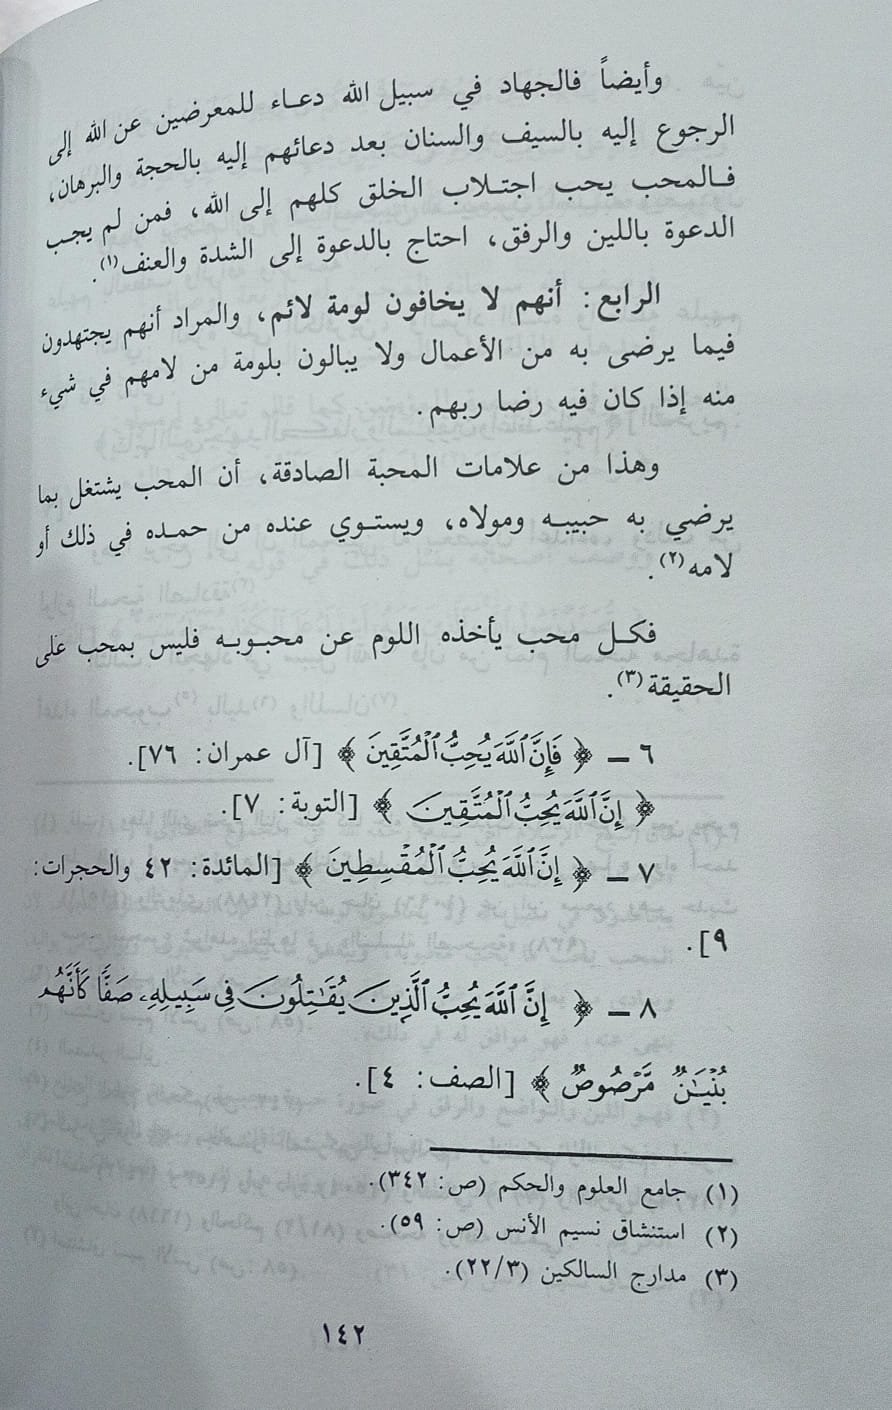 وأيضاً فالجهاد في سبيل الله دعاء للمعرضين عن الله إلى
الرجوع إليه بالسيف والسنان بعد دعائهم إليه بالحجة والبرهان،
فالمحب يحب اجتلاب الخلق كلهم إلى الله، فمن لم يجب
الدعوة باللين والرفق، احتاج بالدعوة إلى الشدة والعنف(١).
الرابع: أنهم لا يخافون لومة لائم، والمراد أنهم يجتهدون
فيما يرضى به من الأعمال ولا يبالون بلومة من لامهم في شيء
منه إذا كان فيه رضا ربهم.
وهذا من علامات المحبة الصادقة، أن المحب يشتغل بما
يرضي به حبيبه ومولاه، ويستوي عنده من حمده في ذلك أو
لامه(٢).
فكل محب يأخذه اللوم عن محبوبه فليس بمحب على
الحقيقة(٣).
٦ - ﴿فَإِنَّ ٱللَّهَ يُحِبُّ ٱلْمُتَّقِينَ﴾ [آل عمران: ٧٦].
﴿إِنَّ ٱللَّهَ يُحِبُّ ٱلْمُتَّقِينَ﴾ [التوبة: ٧].
٧ - ﴿إِنَّ ٱللَّهَ يُحِبُّ ٱلْمُقْسِطِينَ﴾ [المائدة: ٤٢ والحجرات:
٩].
٨ - ﴿إِنَّ ٱللَّهَ يُحِبُّ ٱلَّذِينَ يُقَٰتِلُونَ فِى سَبِيلِهِۦ صَفًّا كَأَنَّهُم
بُنْيَٰنٌ مَّرْصُوصٌ﴾ [الصف: ٤].
(١) جامع العلوم والحكم (ص: ٣٤٢).
(٢) استنشاق نسيم الأنس (ص: ٥٩).
(٣) مدارج السالكين (٢٢/٣).
١٤٢